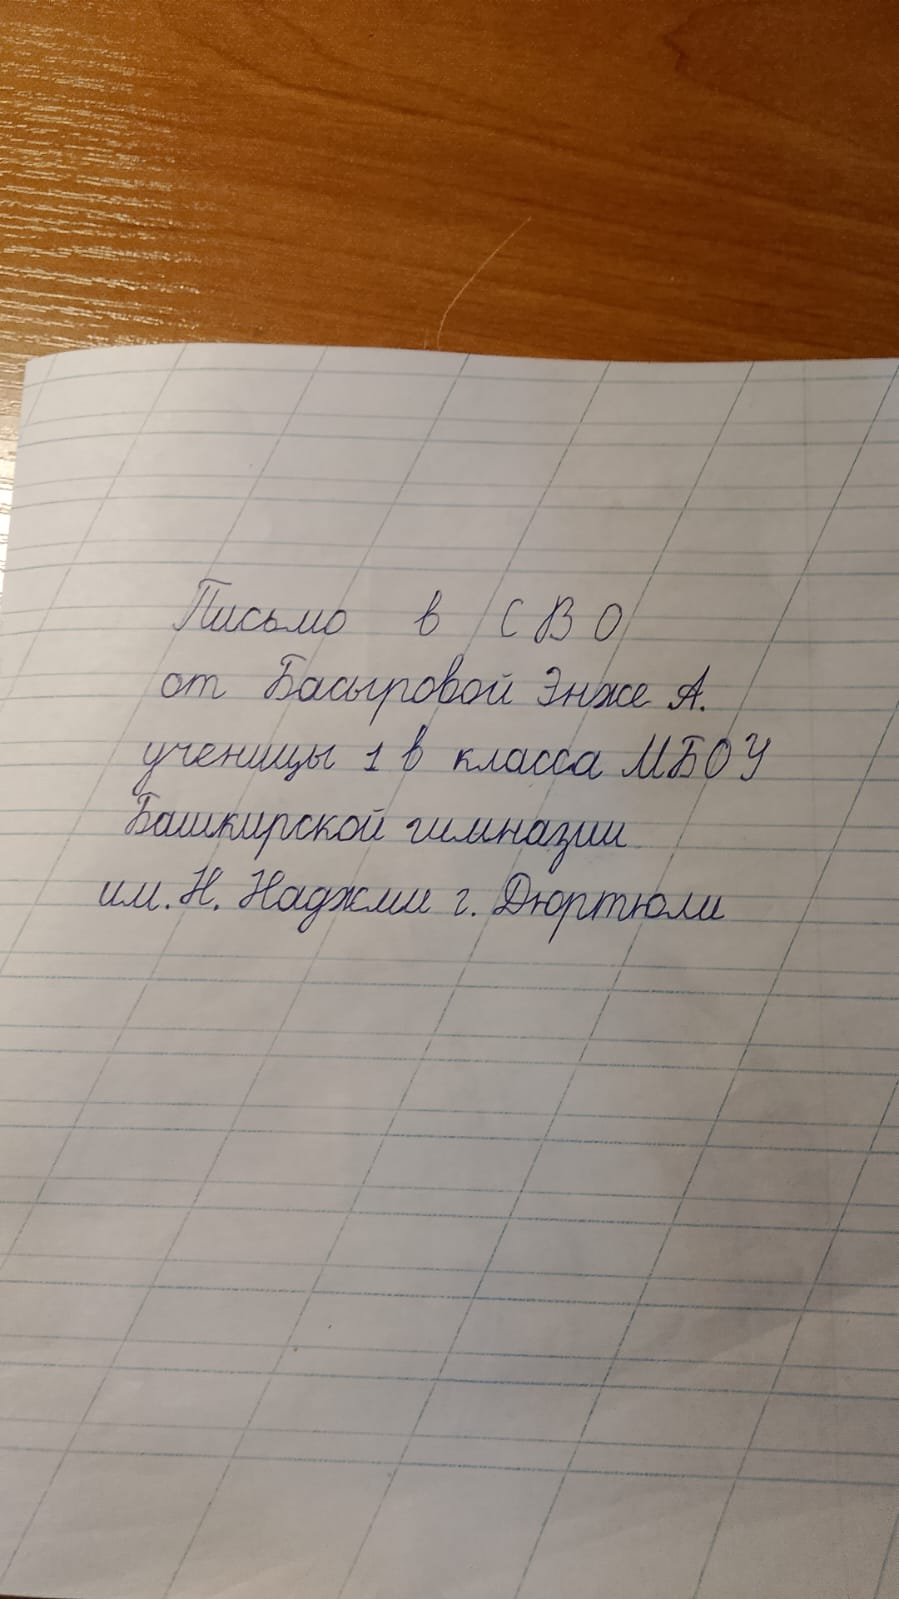 Письмо в СВО
от Басыровой Энже А.
ученицы 1 в класса МБОУ
Башкирской гимназии
им. Н. Наджми г. Дюртюли